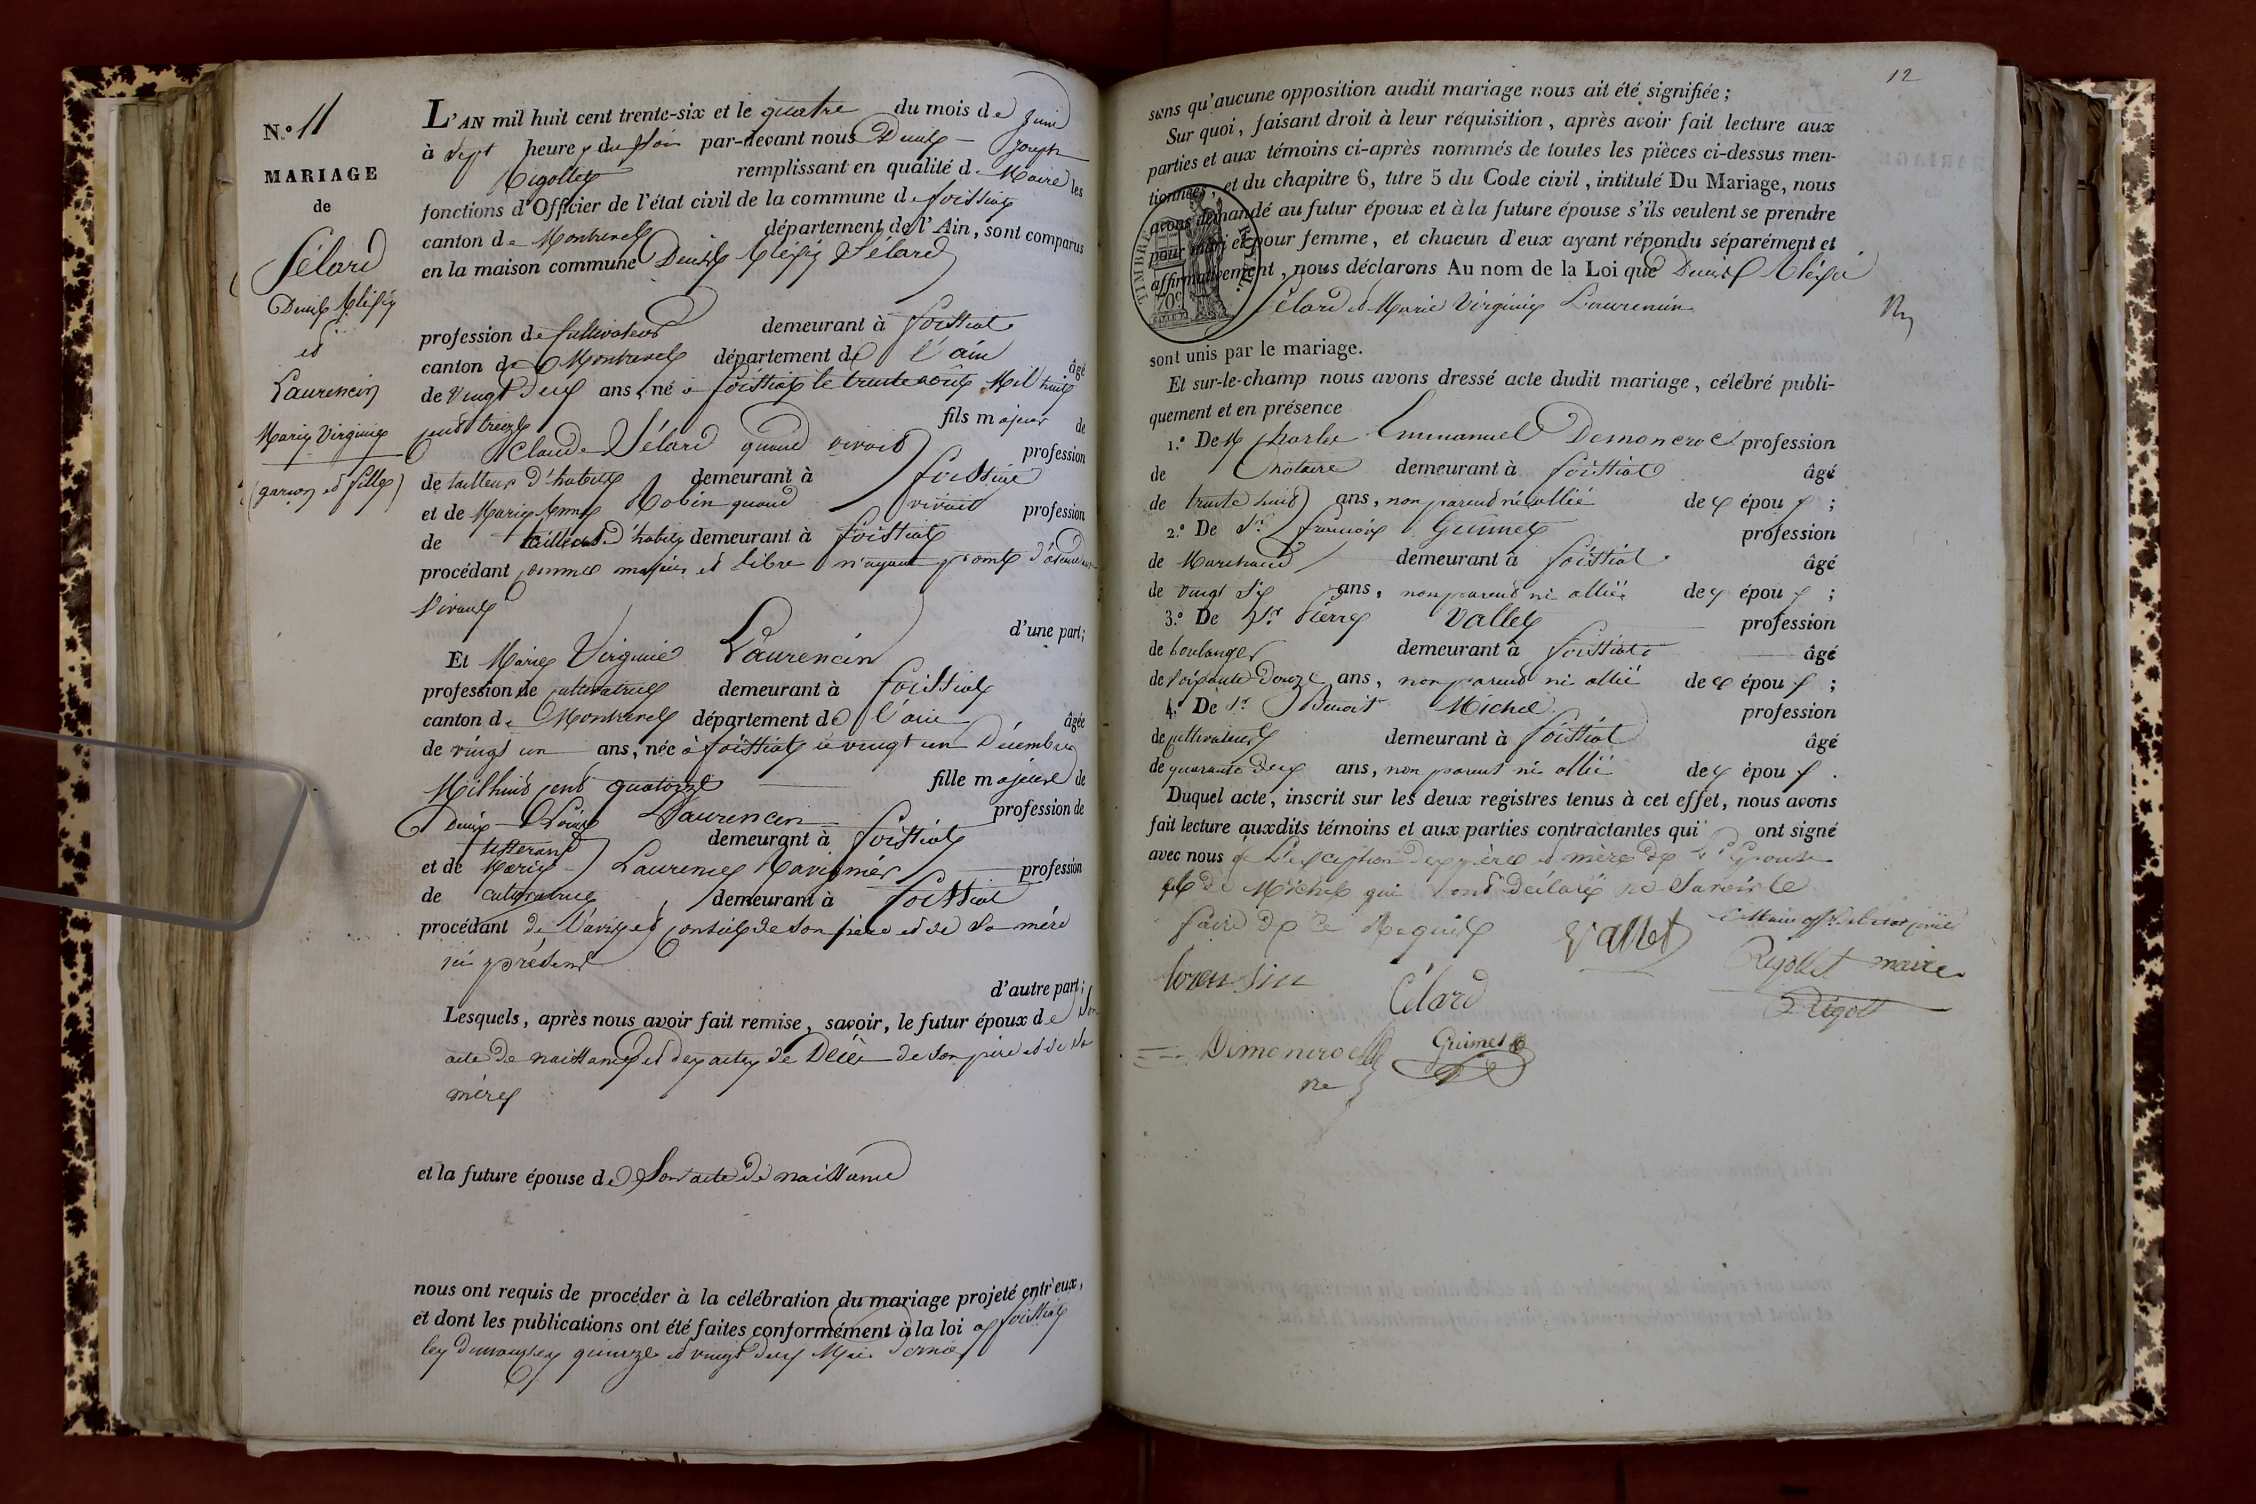 N.º 11
MARIAGE
de
Sélard
Denis Alexis
et
Laurencin
Marie Virginie
(garçon et fille)
L'AN mil huit cent trente-six et le quatre du mois de Juin
à Sept heures du Soir par-devant nous Denis Joseph
Rigollet remplissant en qualité de Maire les
fonctions d'Officier de l'état civil de la commune de foissiat
canton de Montrevel département de l'Ain, sont comparus
en la maison commune Denis Alexis Sélard
profession de Cultivateur demeurant à foissiat
canton de Montrevel département de l'ain âgé
de vingt deux ans, né à foissiat le trente août Mil huit
cent treize fils majeur de
Claude Sélard quand vivait profession
de tailleur d'habits demeurant à foissiat
et de Marie Anne Robin quand vivait profession
de tailleuse d'habits demeurant à foissiat
procédant comme majeur et libre n'ayant point d'ascendans
Vivants
d'une part;
Et Marie Virginie Laurencin
profession de cultivatrice demeurant à foissiat
canton de Montrevel département de l'ain âgée
de vingt un ans, née à foissiat le vingt un Décembre
Mil huit cent quatorze fille majeure de
Denis Laurencin profession de
tisserand demeurant à foissiat
et de Marie Laurence Ravignier profession
de cultivatrice demeurant à foissiat
procédant de l'avis et conseil de son père et de sa mère
ici présens
d'autre part;
Lesquels, après nous avoir fait remise, savoir, le futur époux de son
acte de naissance et des actes de Décès de son père et de sa
mère
et la future épouse de Son acte de naissance
nous ont requis de procéder à la célébration du mariage projeté entr'eux,
et dont les publications ont été faites conformément à la loi à foissiat
les dimanches quinze et vingt deux Mai dernier
12
sans qu'aucune opposition audit mariage nous ait été signifiée;
Sur quoi, faisant droit à leur réquisition, après avoir fait lecture aux
parties et aux témoins ci-après nommés de toutes les pièces ci-dessus men-
tionnées, et du chapitre 6, titre 5 du Code civil, intitulé Du Mariage, nous
avons demandé au futur époux et à la future épouse s'ils veulent se prendre
pour mari et pour femme, et chacun d'eux ayant répondu séparément et
affirmativement, nous déclarons Au nom de la Loi que Denis Alexis
Sélard et Marie Virginie Laurencin
TIMBRE ROYAL.
70c
sont unis par le mariage.
Et sur-le-champ nous avons dressé acte dudit mariage, célébré publi-
quement et en présence
1.º De M Charles Emmanuel Demoncroc profession
de notaire demeurant à foissiat âgé
de trente huit ans, non parent ni allié des époux;
2.º De Sr. françois Guimet profession
de Marchand demeurant à foissiat âgé
de vingt six ans, non parent ni allié des époux;
3.º De Sr. Pierre Vallet profession
de boulanger demeurant à foissiat âgé
de soixante douze ans, non parent ni allié des époux;
4.º De Sr. Benoit Michel profession
de cultivateur demeurant à foissiat âgé
de quarante deux ans, non parent ni allié des époux.
Duquel acte, inscrit sur les deux registres tenus à cet effet, nous avons
fait lecture auxdits témoins et aux parties contractantes qui ont signé
avec nous à l'exception des père et mère de l'Épouse
et de Michel qui ont déclaré ne Savoir le
faire de ce Requis
Vallet
Rigollet maire
lorensin
Célard
D Rigolt
Demoncroc
Guimet